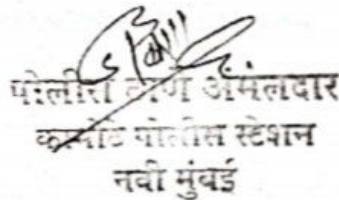 पोलीस ठाणे अंमलदार
कामोठे पोलीस स्टेशन
नवी मुंबई